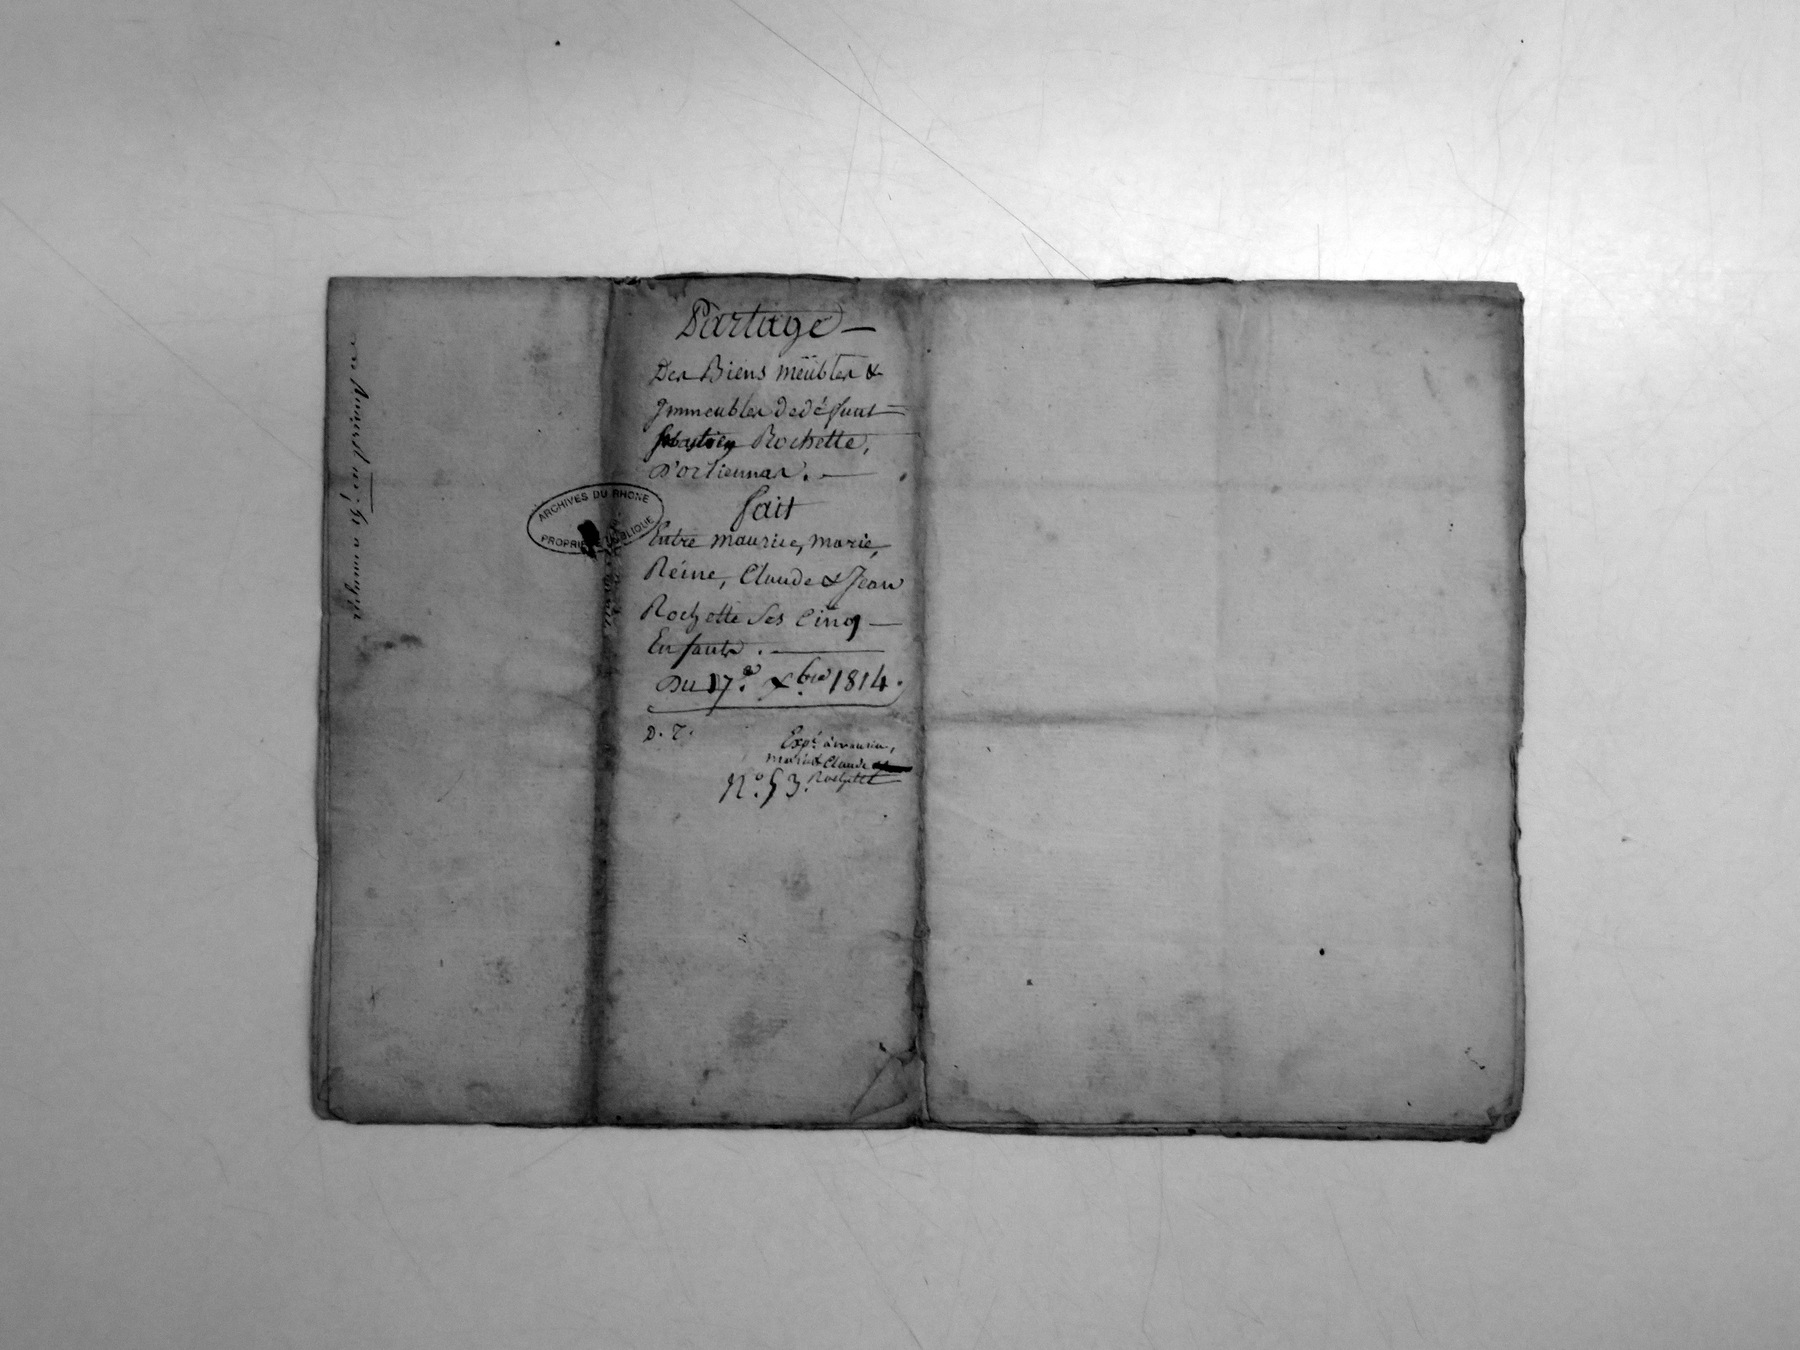 Partage —
Des Biens Meübles &
Immeubles de défunt
Rochette,
D'orliennas. —
fait
Entre maurice, marie,
Reine, Claude & Jean
Rochette Ses Cinq —
Enfants. —
Du 17.e Xbre 1814.
D. T.
Exp.é à maurice,
marie & Claude
Rochette
N.o 53.
ARCHIVES DU RHONE
PROPRIETE PUBLIQUE